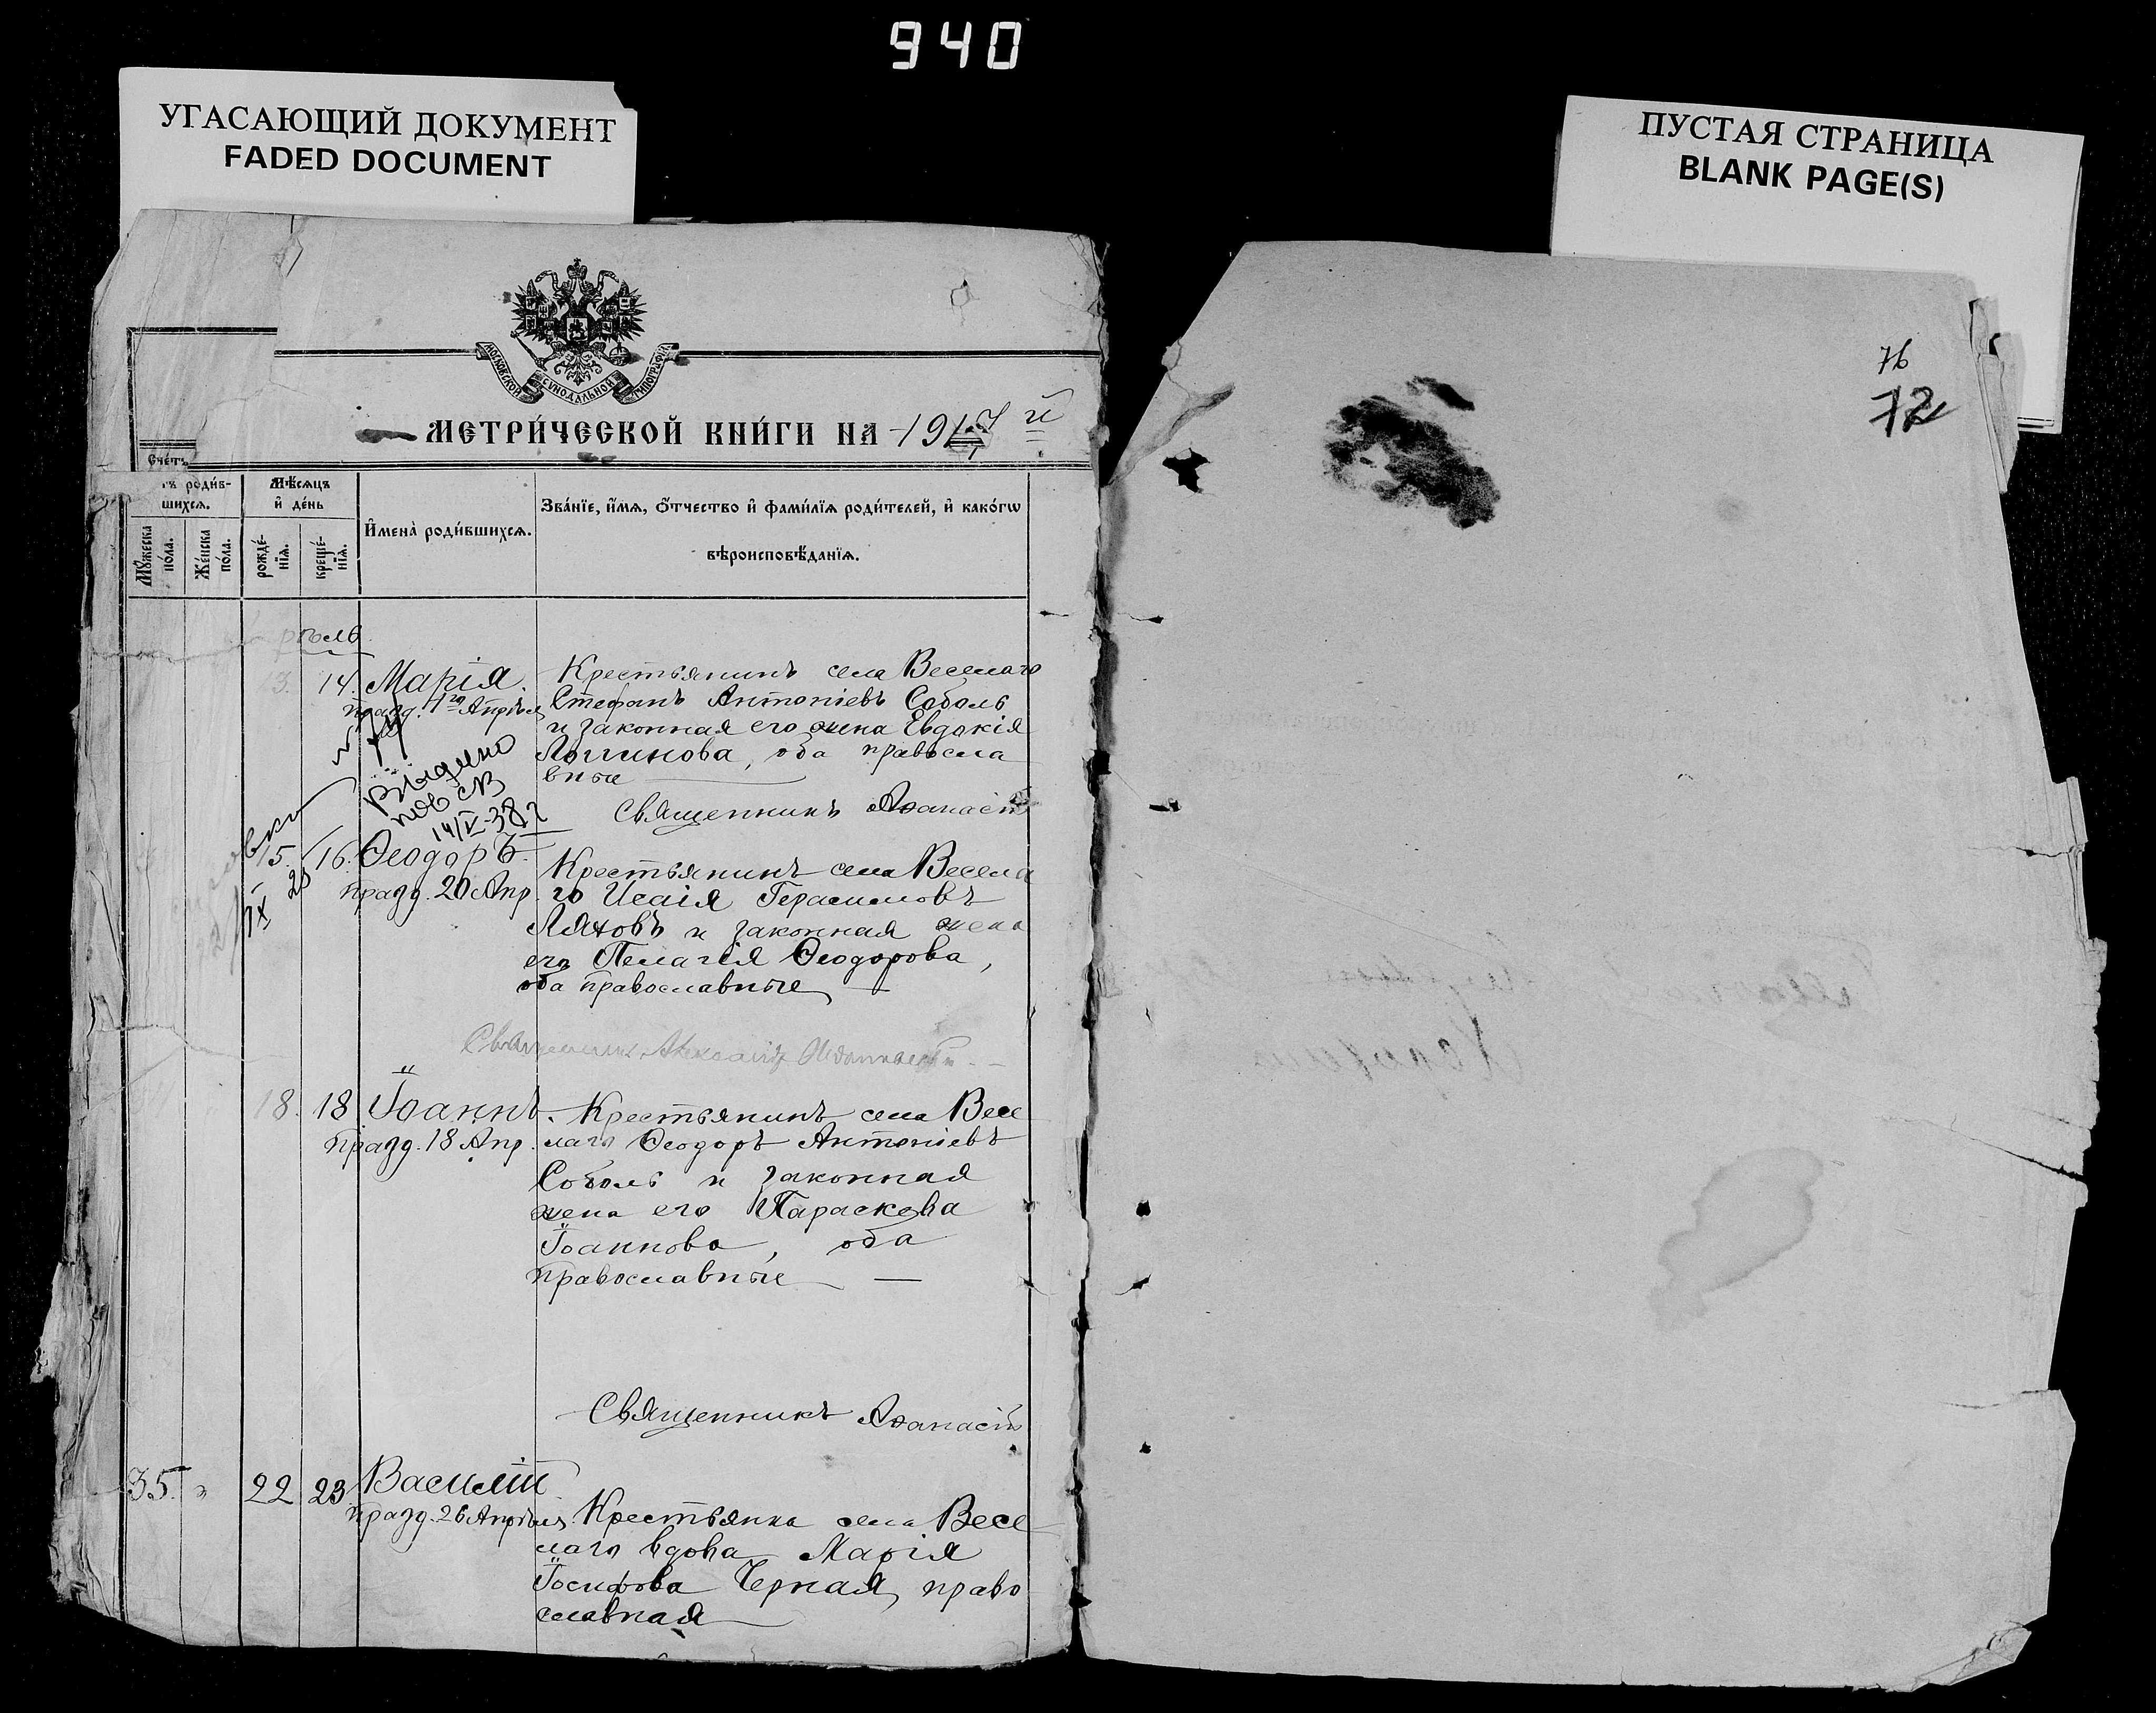 940
УГАСАЮЩИЙ ДОКУМЕНТ
FADED DOCUMENT
ПУСТАЯ СТРАНИЦА
BLANK PAGE(S)
76
12
МОСКОВСКОЙ СѴНОДАЛЬНОЙ ТИПОГРАФІИ
МЕТРИ́ЧЕСКОЙ КНИ́ГИ НА 1917 й
Сче́тъ
тъ роди́в-
шихсѧ.
Мꙋжеска
по́ла.
Же́нска
по́ла.
Мѣ́сѧцъ
и҆ де́нь
рожде́-
нїѧ.
креще́-
нїѧ.
И҆мена̀ роди́вшихсѧ.
Зва́нїе, и҆́мѧ, ѻ҆́тчество и҆ фами́лїѧ роди́телей, и҆ како́гѡ
вѣроисповѣ́данїѧ.
рѣль
13. 14. Марія.
празд. 1го Апрѣля
Крестьянинъ села Веселаго
Стефанъ Антоніевъ Соболь
и законная его жена Евдокія
Логгинова, оба правосла
вные
Священникъ Аѳанасій
Выдано
14/V-38 г
15. 16. Ѳеодоръ.
празд. 20 Апр.
Крестьянинъ села Весела
го Исаія Герасимовъ
Ляховъ и законная жена
его Пелагія Ѳеодорова,
оба православные
Священникъ Александр
18. 18 Іоаннъ.
празд. 18 Апр.
Крестьянинъ села Весе
лаго Ѳеодоръ Антоніевъ
Соболь и законная
жена его Параскева
Іоаннова, оба
православные
Священникъ Аѳанасій
35. " 22 23 Василій
празд. 26 Апрѣля
Крестьянка села Весе
лаго вдова Марія
Іосифова Черная, право
славная